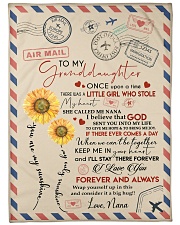 AIR MAIL
TO MY
Granddaughter
ONCE upon a time
THERE WAS A LITTLE GIRL WHO STOLE
My heart
SHE CALLED ME NANA
I believe that GOD
SENT YOU INTO MY LIFE
TO GIVE ME HOPE & TO BRING ME JOY.
IF THERE EVER COMES A DAY
When we can't be together
KEEP ME IN your heart
and I'LL STAY THERE FOREVER
I Love You
FOREVER AND ALWAYS
Wrap yourself up in this
and consider it a big hug!
Love, Nana
You are my sunshine
my only sunshine